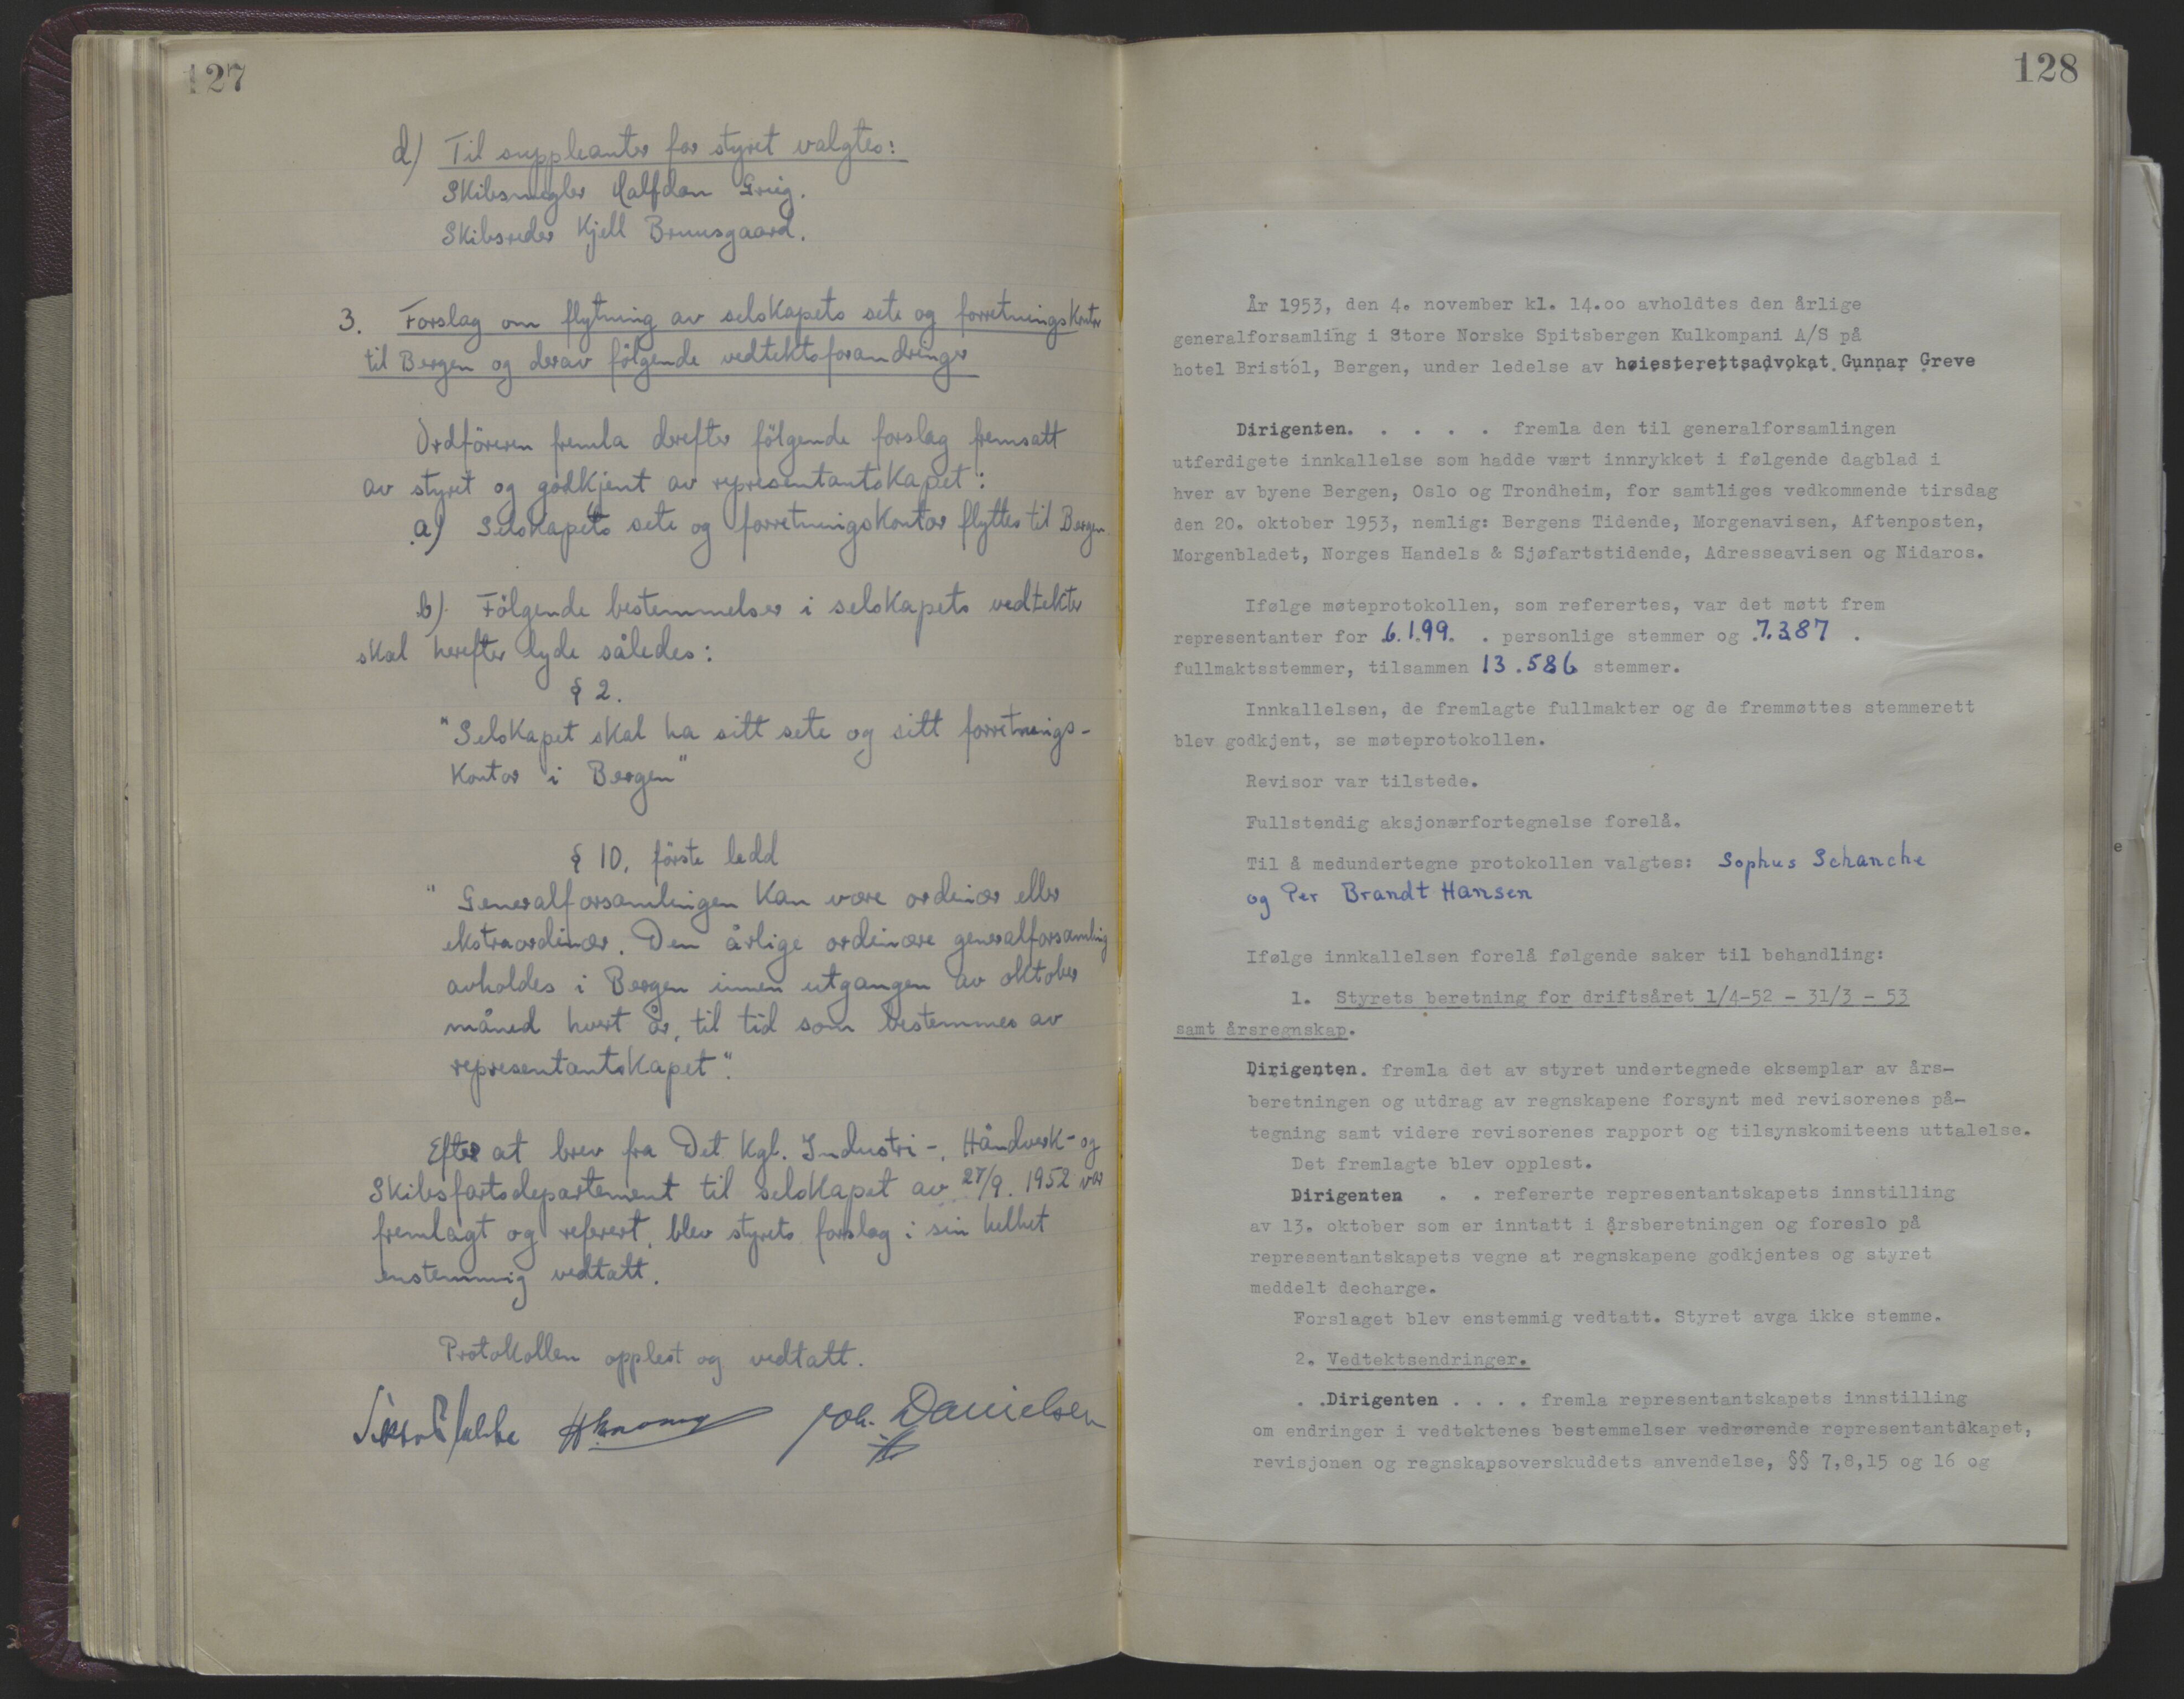 127
d) Til suppleanter for styret valgtes:
Skibsmegler Halfdan Grieg.
Skibsreder Kjell Bruusgaard.
3. Forslag om flytning av selskapets sete og forretningskontor
til Bergen og derav følgende vedtektsforandringer
Ordføreren fremla derefter følgende forslag fremsatt
av styret og godkjent av representantskapet:
a) Selskapets sete og forretningskontor flyttes til Bergen.
b) Følgende bestemmelser i selskapets vedtekter
skal herefter lyde således:
§ 2.
"Selskapet skal ha sitt sete og sitt forretnings-
kontor i Bergen"
§ 10, første ledd
"Generalforsamlingen kan være ordinær eller
ekstraordinær. Den årlige ordinære generalforsamling
avholdes i Bergen innen utgangen av oktober
måned hvert år, til tid som bestemmes av
representantskapet".
Efter at brev fra Det Kgl. Industri-, Håndverk- og
Skibsfartsdepartement til selskapet av 27/9. 1952 var
fremlagt og referert, blev styrets forslag i sin helhet
enstemmig vedtatt.
Protokollen opplest og vedtatt.
Joh. Danielsen
128
År 1953, den 4. november kl. 14.00 avholdtes den årlige
generalforsamling i Store Norske Spitsbergen Kulkompani A/S på
hotel Bristol, Bergen, under ledelse av høiesterettsadvokat Gunnar Greve
Dirigenten. . . . . fremla den til generalforsamlingen
utferdigete innkallelse som hadde vært innrykket i følgende dagblad i
hver av byene Bergen, Oslo og Trondheim, for samtliges vedkommende tirsdag
den 20. oktober 1953, nemlig: Bergens Tidende, Morgenavisen, Aftenposten,
Morgenbladet, Norges Handels & Sjøfartstidende, Adresseavisen og Nidaros.
Ifølge møteprotokollen, som referertes, var det møtt frem
representanter for 6.199. . personlige stemmer og .7.387 .
fullmaktsstemmer, tilsammen 13.586 stemmer.
Innkallelsen, de fremlagte fullmakter og de fremmøttes stemmerett
blev godkjent, se møteprotokollen.
Revisor var tilstede.
Fullstendig aksjonærfortegnelse forelå.
Til å medundertegne protokollen valgtes: Sophus Schanche
og Per Brandt Hansen
Ifølge innkallelsen forelå følgende saker til behandling:
1. Styrets beretning for driftsåret 1/4-52 - 31/3 - 53
samt årsregnskap.
Dirigenten. fremla det av styret undertegnede eksemplar av års-
beretningen og utdrag av regnskapene forsynt med revisorenes på-
tegning samt videre revisorenes rapport og tilsynskomiteens uttalelse.
Det fremlagte blev opplest.
Dirigenten . . refererte representantskapets innstilling
av 13. oktober som er inntatt i årsberetningen og foreslo på
representantskapets vegne at regnskapene godkjentes og styret
meddelt decharge.
Forslaget blev enstemmig vedtatt. Styret avga ikke stemme.
2. Vedtektsendringer.
. .Dirigenten . . . . fremla representantskapets innstilling
om endringer i vedtektenes bestemmelser vedrørende representantskapet,
revisjonen og regnskapsoverskuddets anvendelse, §§ 7,8,15 og 16 og